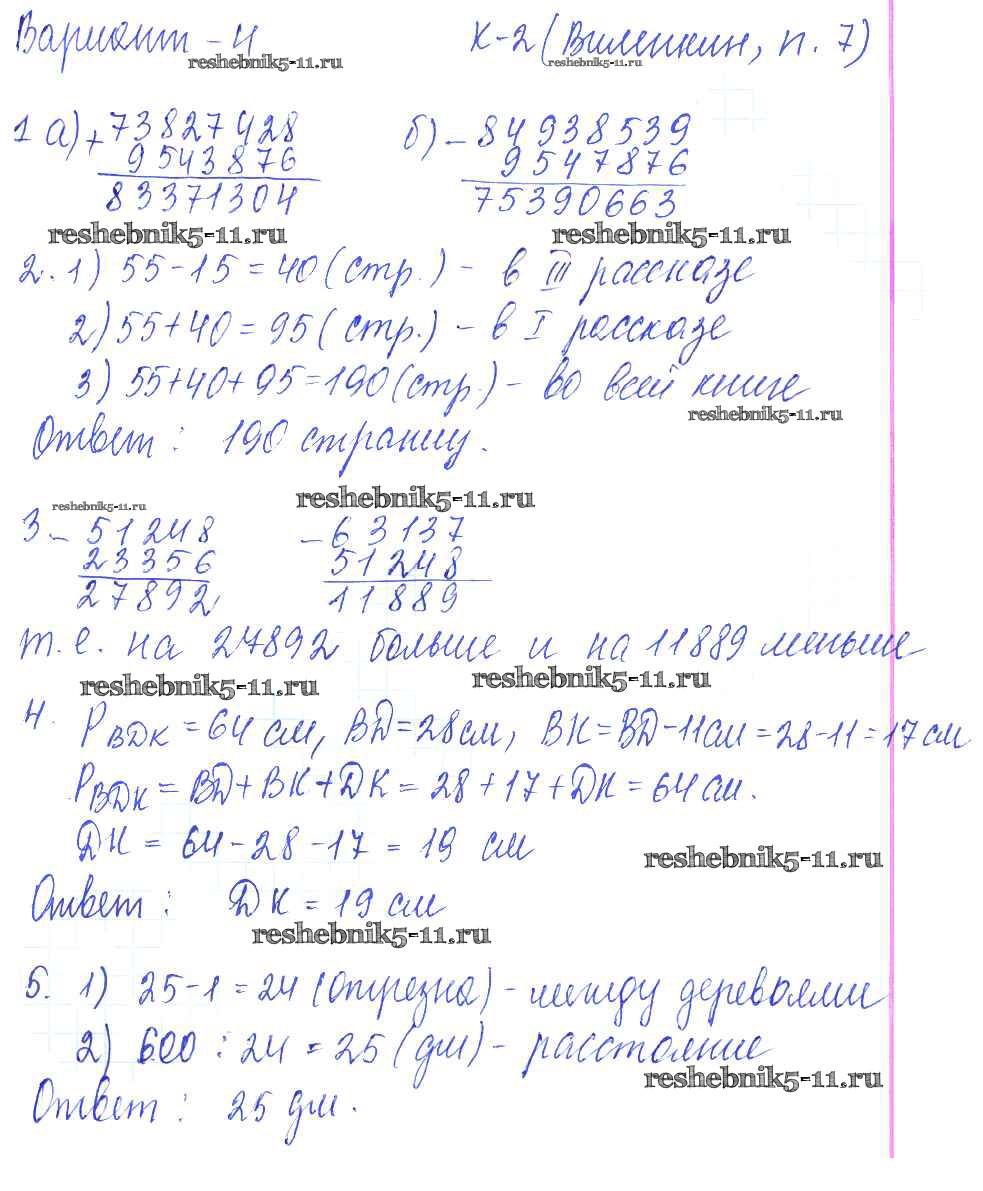 Вариант - 4 К-2 (Виленкин, п. 7)
reshebnik5-11.ru reshebnik5-11.ru
1 а) + 73827428 б) - 84938539
9543876 9547876
83371304 75390663
reshebnik5-11.ru reshebnik5-11.ru
2. 1) 55-15 = 40 (стр.) - в III рассказе
2) 55+40 = 95 (стр.) - в I рассказе
3) 55+40+95=190 (стр.) - во всей книге
reshebnik5-11.ru
Ответ: 190 страниц.
reshebnik5-11.ru reshebnik5-11.ru
3 - 51248 - 63137
23356 51248
27892 11889
т.е. на 27892 больше и на 11889 меньше
reshebnik5-11.ru reshebnik5-11.ru
4. PВДК = 64 см, ВД=28см, ВК=ВД-11см=28-11=17см
PВДК = ВД+ВК+ДК = 28+17+ДК=64см.
ДК = 64-28-17 = 19 см
reshebnik5-11.ru
Ответ: ДК = 19 см
reshebnik5-11.ru
5. 1) 25-1=24 (отрезка) - между деревьями
2) 600 : 24 = 25 (дм) - расстояние
reshebnik5-11.ru
Ответ: 25 дм.